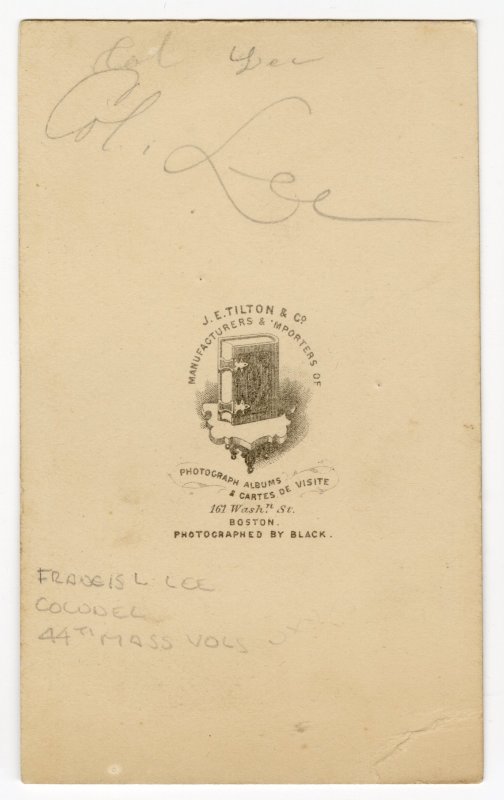 Col Lee
Col. Lee
J. E. TILTON & Co.
MANUFACTURERS & IMPORTERS OF
PHOTOGRAPH ALBUMS
& CARTES DE VISITE
161 Washn. St.
BOSTON.
PHOTOGRAPHED BY BLACK.
FRANCIS L. LEE
COLONEL
44TH MASS VOLS